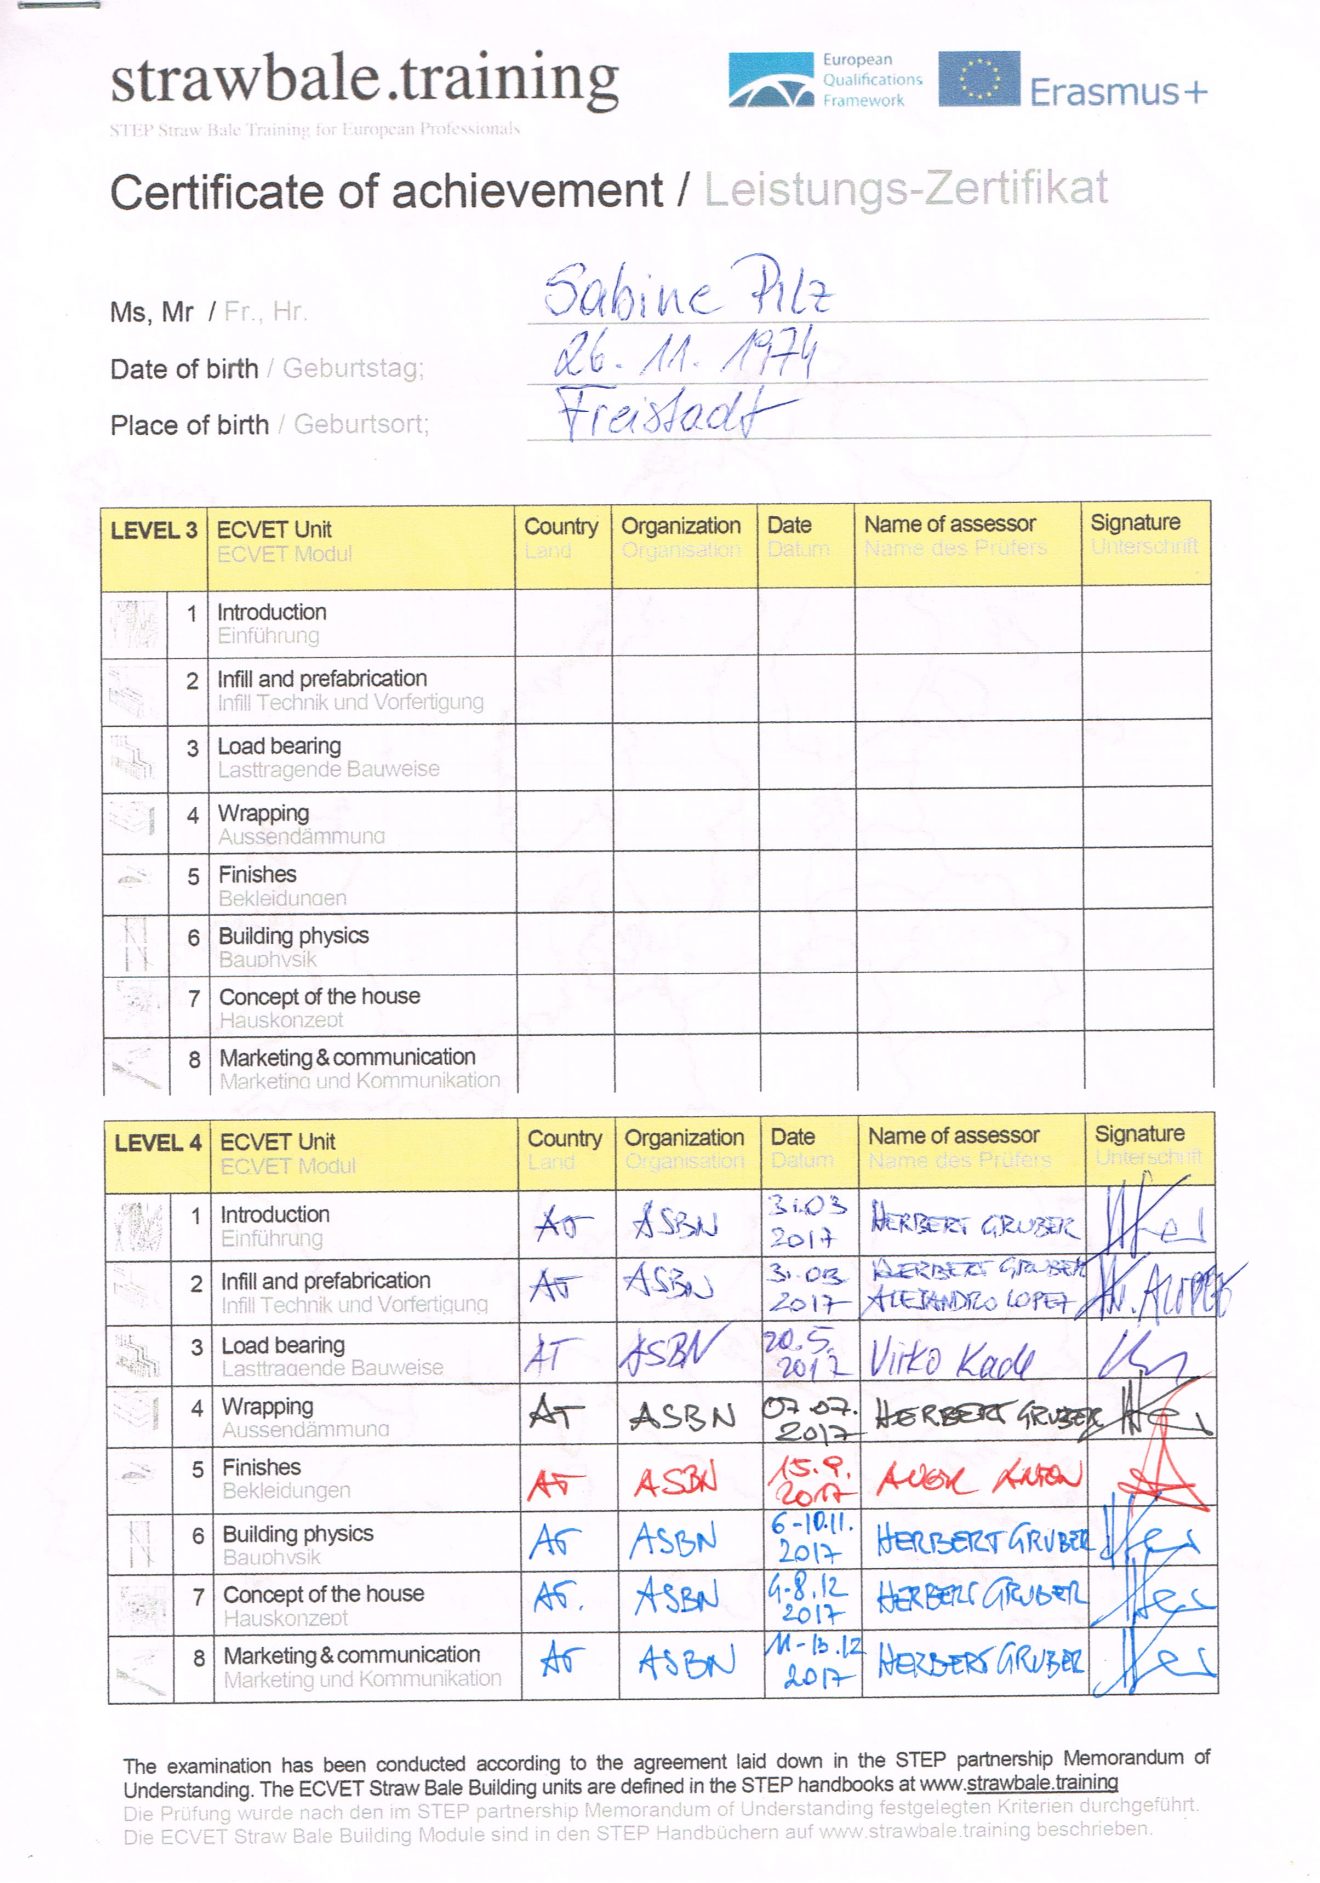 strawbale.training
STEP Straw Bale Training for European Professionals
European
Qualifications
Framework
Erasmus+
Certificate of achievement / Leistungs-Zertifikat
Ms, Mr / Fr., Hr. Sabine Pilz
Date of birth / Geburtstag; 26.11.1974
Place of birth / Geburtsort; Freistadt
LEVEL 3 ECVET Unit Country Organization Date Name of assessor Signature
ECVET Modul Land Organisation Datum Name des Prüfers Unterschrift
1 Introduction
Einführung
2 Infill and prefabrication
Infill Technik und Vorfertigung
3 Load bearing
Lasttragende Bauweise
4 Wrapping
Aussendämmung
5 Finishes
Bekleidungen
6 Building physics
Bauphysik
7 Concept of the house
Hauskonzept
8 Marketing & communication
Marketing und Kommunikation
LEVEL 4 ECVET Unit Country Organization Date Name of assessor Signature
ECVET Modul Land Organisation Datum Name des Prüfers Unterschrift
1 Introduction AT ASBN 31.03 HERBERT GRUBER
Einführung 2017
2 Infill and prefabrication AT ASBN 31.03 HERBERT GRUBER
Infill Technik und Vorfertigung 2017 ALEJANDRO LOPEZ A. LOPEZ
3 Load bearing AT ASBN 20.5. Virko Kade
Lasttragende Bauweise 2017
4 Wrapping AT ASBN 07.07. HERBERT GRUBER
Aussendämmung 2017
5 Finishes AT ASBN 15.9.
Bekleidungen 2017
6 Building physics AT ASBN 6-10.11. HERBERT GRUBER
Bauphysik 2017
7 Concept of the house AT. ASBN 4-8.12 HERBERT GRUBER
Hauskonzept 2017
8 Marketing & communication AT ASBN 11-13.12 HERBERT GRUBER
Marketing und Kommunikation 2017
The examination has been conducted according to the agreement laid down in the STEP partnership Memorandum of
Understanding. The ECVET Straw Bale Building units are defined in the STEP handbooks at www.strawbale.training
Die Prüfung wurde nach den im STEP partnership Memorandum of Understanding festgelegten Kriterien durchgeführt.
Die ECVET Straw Bale Building Module sind in den STEP Handbüchern auf www.strawbale.training beschrieben.